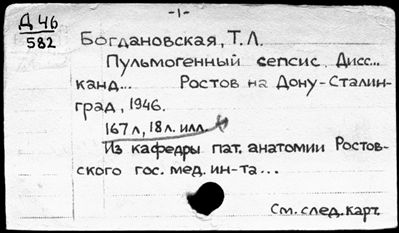 -1-
Д 46
582
Богдановская, Т. Л.
Пульмогенный сепсис. Дисс...
канд... Ростов на Дону-Сталин-
град, 1946.
167 л, 18 л. илл.
Из кафедры пат. анатомии Ростов-
ского гос. мед. ин-та...
См. след. карт.